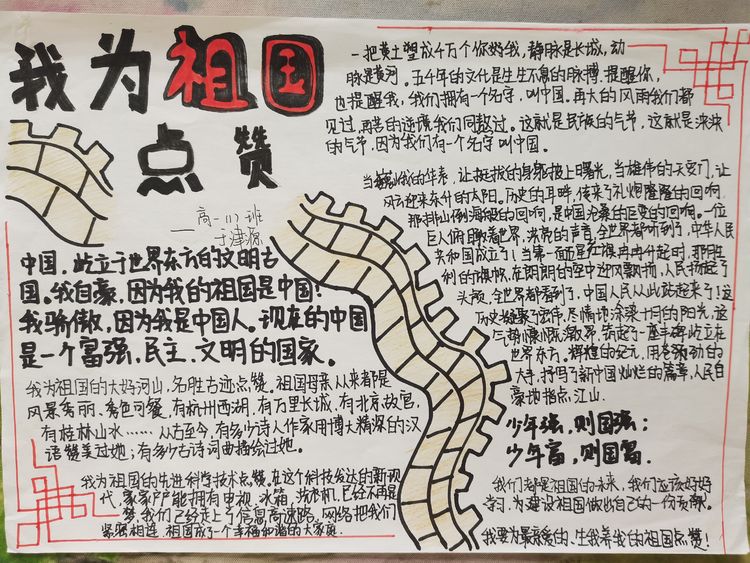 我为祖国
点赞
高一(1)班
于津源
中国，屹立于世界东方的文明古
国。我自豪，因为我的祖国是中国！
我骄傲，因为我是中国人。现在的中国
是一个富强、民主、文明的国家。
我为祖国的大好河山，名胜古迹点赞。祖国母亲从来都是
风景秀丽、秀色可餐，有杭州西湖，有万里长城，有北京故宫，
有桂林山水……从古至今，有多少诗人作家用博大精深的汉
语赞美过她；有多少古诗词曲描绘过她。
我为祖国的先进科学技术点赞。在这个科技发达的新现
代，家家户户能拥有电视、冰箱，汽车飞机已经不再是
梦，我们已经走上了信息高速路，网络把我们
紧紧相连，祖国成了一个幸福和谐的大家庭。
一把黄土塑成千万个你和我，静脉是长城，动
脉是黄河。五千年的文化是生生不息的脉搏，提醒你，
也提醒我，我们拥有一个名字，叫中国。再大的风雨我们都
见过，再苦的逆境我们同熬过。这就是民族的气节，这就是泱泱
的气节，因为我们有一个名字叫中国。
当巍峨的华表，让挺拔的身躯披上曙光，当雄伟的天安门，让
风云迎来东升的太阳。历史的耳畔，传来了礼炮隆隆的回响，
那排山倒海般的回响，是中国沧桑的巨变的回响。一位
巨人俯瞰着世界，洪亮的声音，全世界都听到了，中华人民
共和国成立了！当第一面五星红旗冉冉升起时，那胜
利的旗帜，在朗朗的空中迎风飘扬，人民扬起了
头颅，全世界都看到了，中国人民从此站起来了！这
历史凝聚了宏伟，尽情地滚滚十月的阳光，这
气势慷慨激昂，筑起了一座丰碑屹立在
世界东方，辉煌的纪元，用苍劲的
大手，抒写了新中国灿烂的篇章，人民自
豪地指点江山。
少年强，则国强；
少年富，则国富。
我们都是祖国的未来，我们应该好好
学习，为建设祖国做出自己的一份贡献。
我要为最亲爱的、生我养我的祖国点赞！